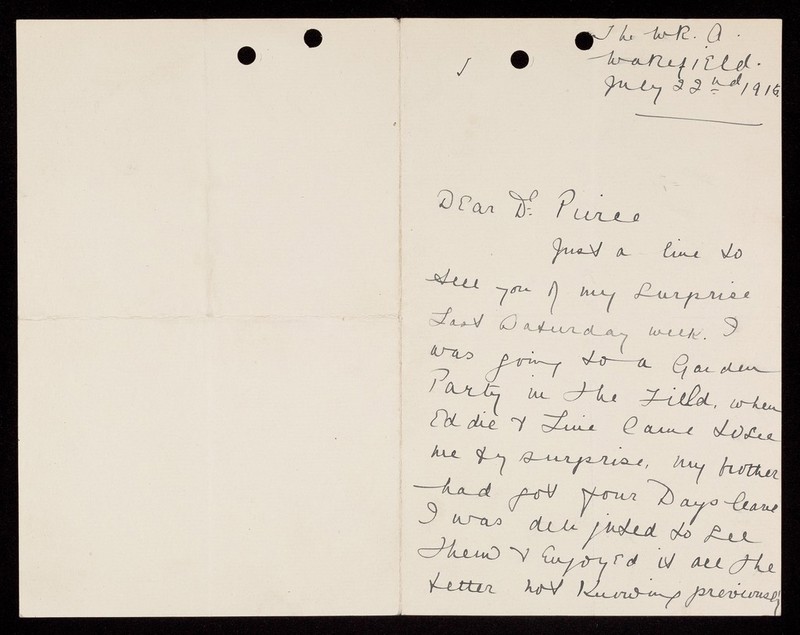 The W.R. A.
Wakefield.
July 22nd 1916
Dear Dr. Pierce
Just a line to
tell you of my surprise
Last Saturday week. I
was going to a Garden
Party in the Field, when
Eddie & Line Came to see
me by surprise, my brother
had got four Days leave
I was delighted to see
them & Enjoyed it all the
better not Knowing previously